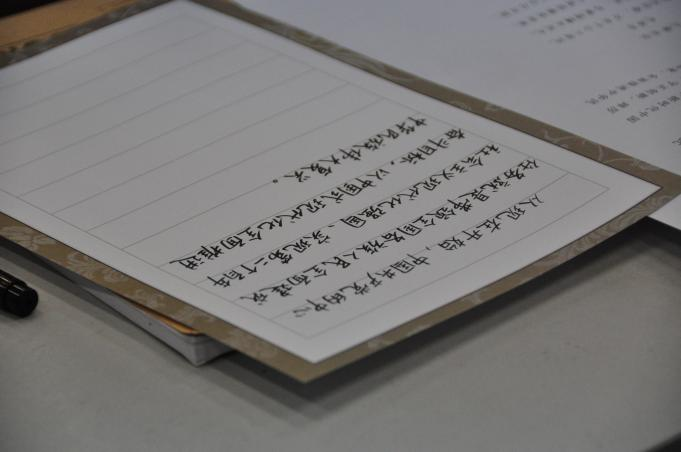 从现在开始，中国共产党的中心
任务就是带领全国各族人民全面建成
社会主义现代化强国、实现第二个百年
奋斗目标，以中国式现代化全面推进
中华民族伟大复兴。